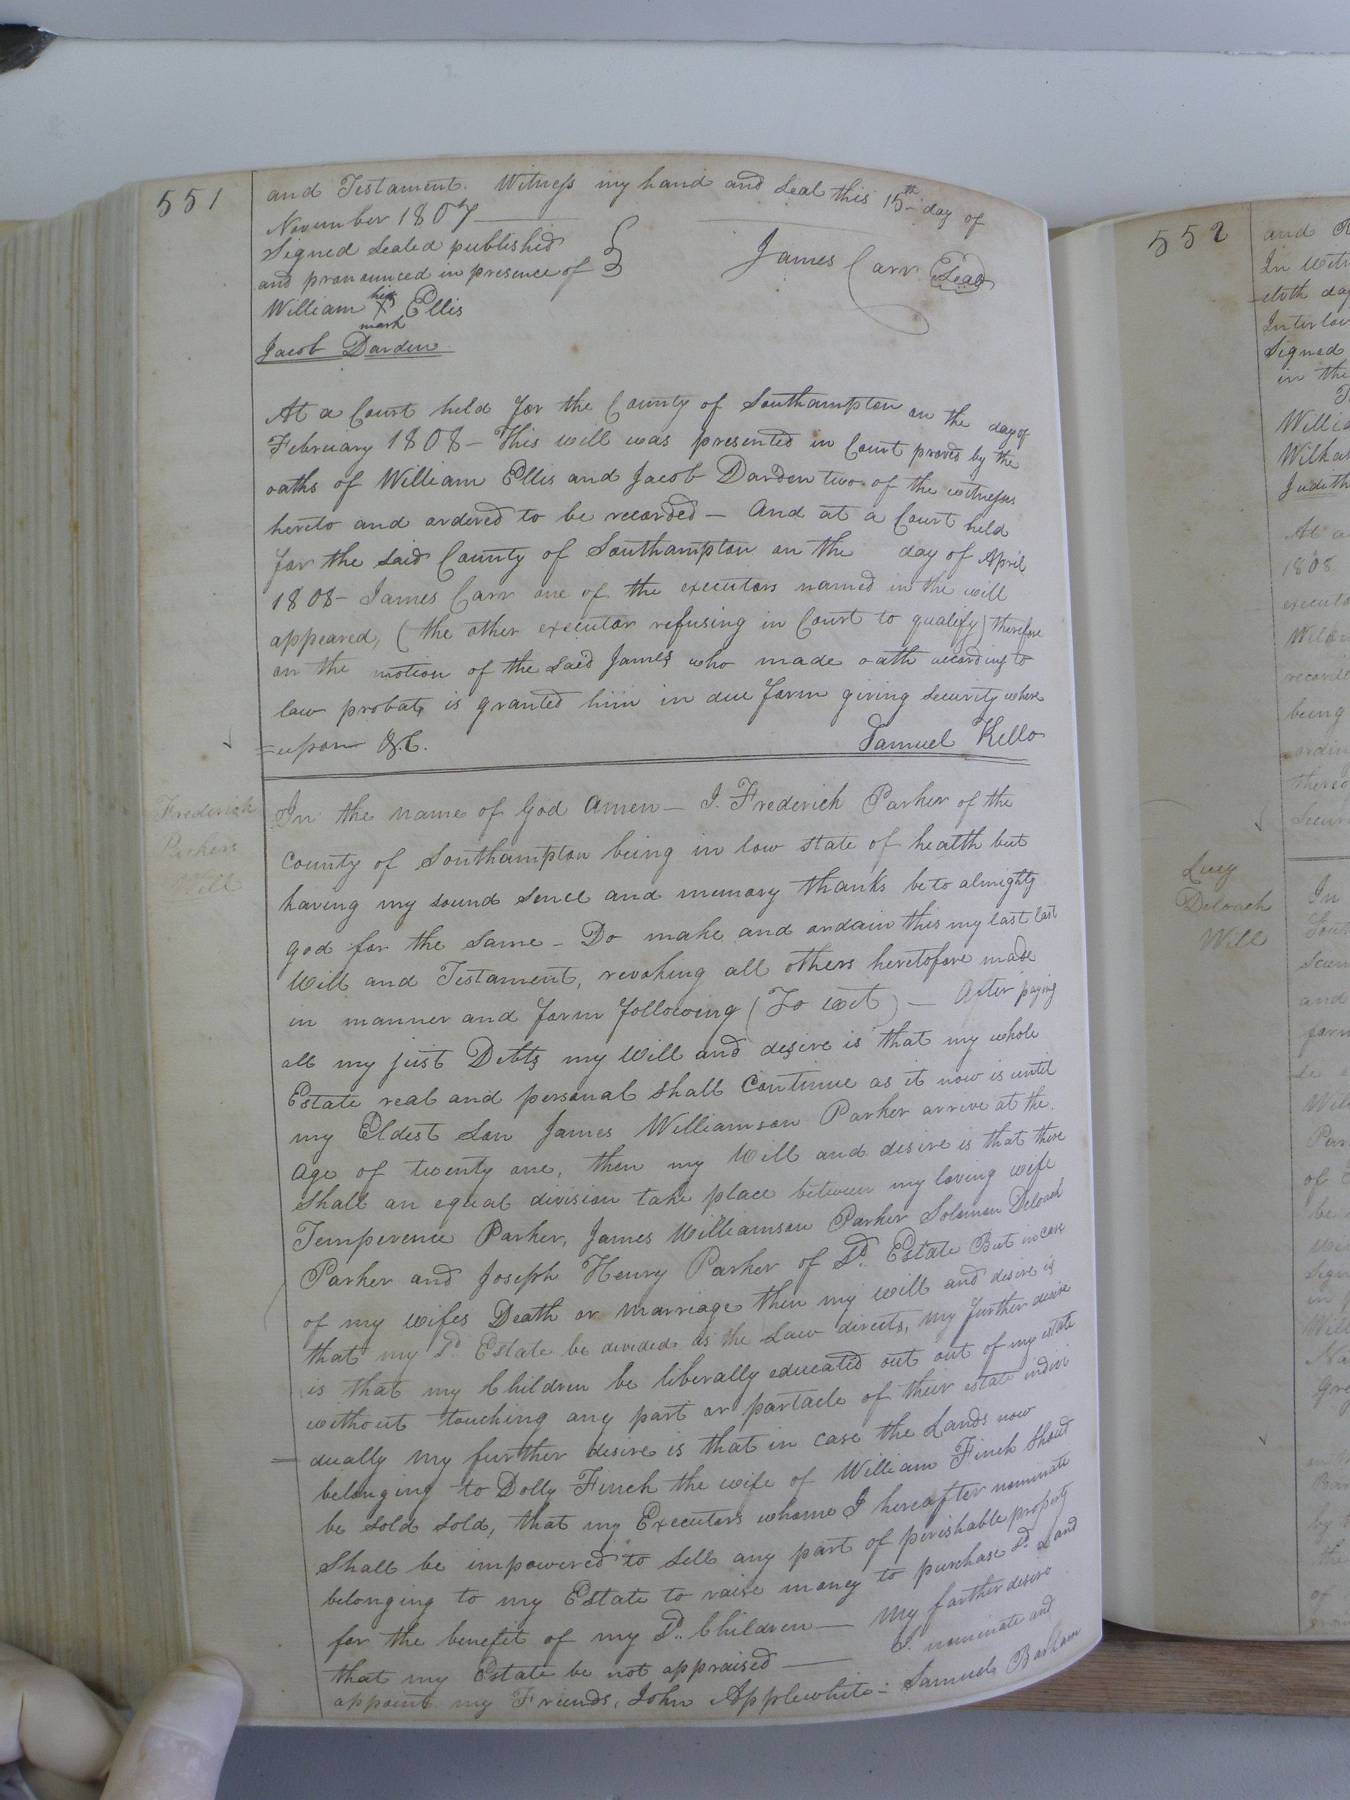 551
and Testament. Witness my hand and seal this 15th day of
November 1807
Signed sealed published
and pronounced in presence of
James Carr Seal
William his X mark Ellis
Jacob Darden
At a Court held for the County of Southampton on the day of
February 1808 - This will was presented in Court proved by the
oaths of William Ellis and Jacob Darden two of the witnesses
hereto and ordered to be recorded - And at a Court held
for the said County of Southampton on the day of April
1808 - James Carr one of the executors named in the will
appeared, (the other executor refusing in Court to qualify) therefore
on the motion of the said James who made oath according to
law probate is granted him in due form giving security where
=upon &C.
Samuel Kello
Frederick
Parkers
Will
In the name of God Amen - I. Frederick Parker of the
County of Southampton being in low state of health but
having my sound sence and memory thanks be to almighty
god for the same - Do make and ordain this my last last
Will and Testament, revoking all others heretofore made
in manner and form following (To wit) - After paying
all my just Debts my Will and desire is that my whole
Estate real and personal shall Continue as it now is until
my Eldest Son James Williamson Parker arrive at the
age of twenty one, then my Will and desire is that there
shall an equal division take place between my loving wife
Temperence Parker, James Williamson Parker Solomon Deloach
Parker and Joseph Henry Parker of Sd. Estate But in case
of my wifes Death or marriage then my will and desire is
that my Sd. Estate be divided as the Law directs, my further desire
is that my Children be liberally educated out out of my estate
without touching any part or partacle of their estate indivi
=dually my further desire is that in case the Lands now
belonging to Dolly Finch the wife of William Finch should
be sold sold, that my Executors whome I hereafter nominate
shall be impowered to sell any part of perishable property
belonging to my Estate to raise money to purchase Sd. Land
for the benefit of my Sd. Children - My farther desire
that my Estate be not appraised - I. nominate and
appoint my Friends, John Applewhite - Samuel Barham
552
and
In
day
Signed
in the
Judith
At a
1808
being
Lucy
Deloach
Will
In
and
of